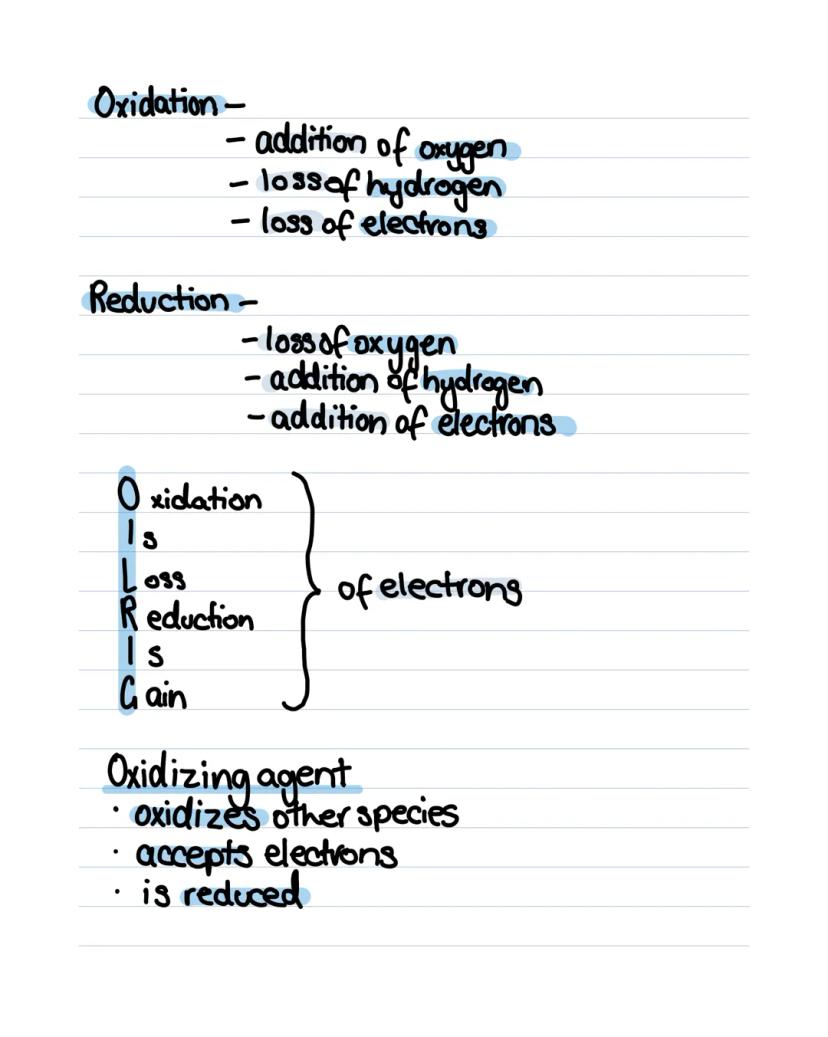 Oxidation -
- addition of oxygen
- loss of hydrogen
- loss of electrons
Reduction -
- loss of oxygen
- addition of hydrogen
- addition of electrons
Oxidation
Is
Loss
Reduction
Is
Gain
of electrons
Oxidizing agent
· oxidizes other species
· accepts electrons
· is reduced